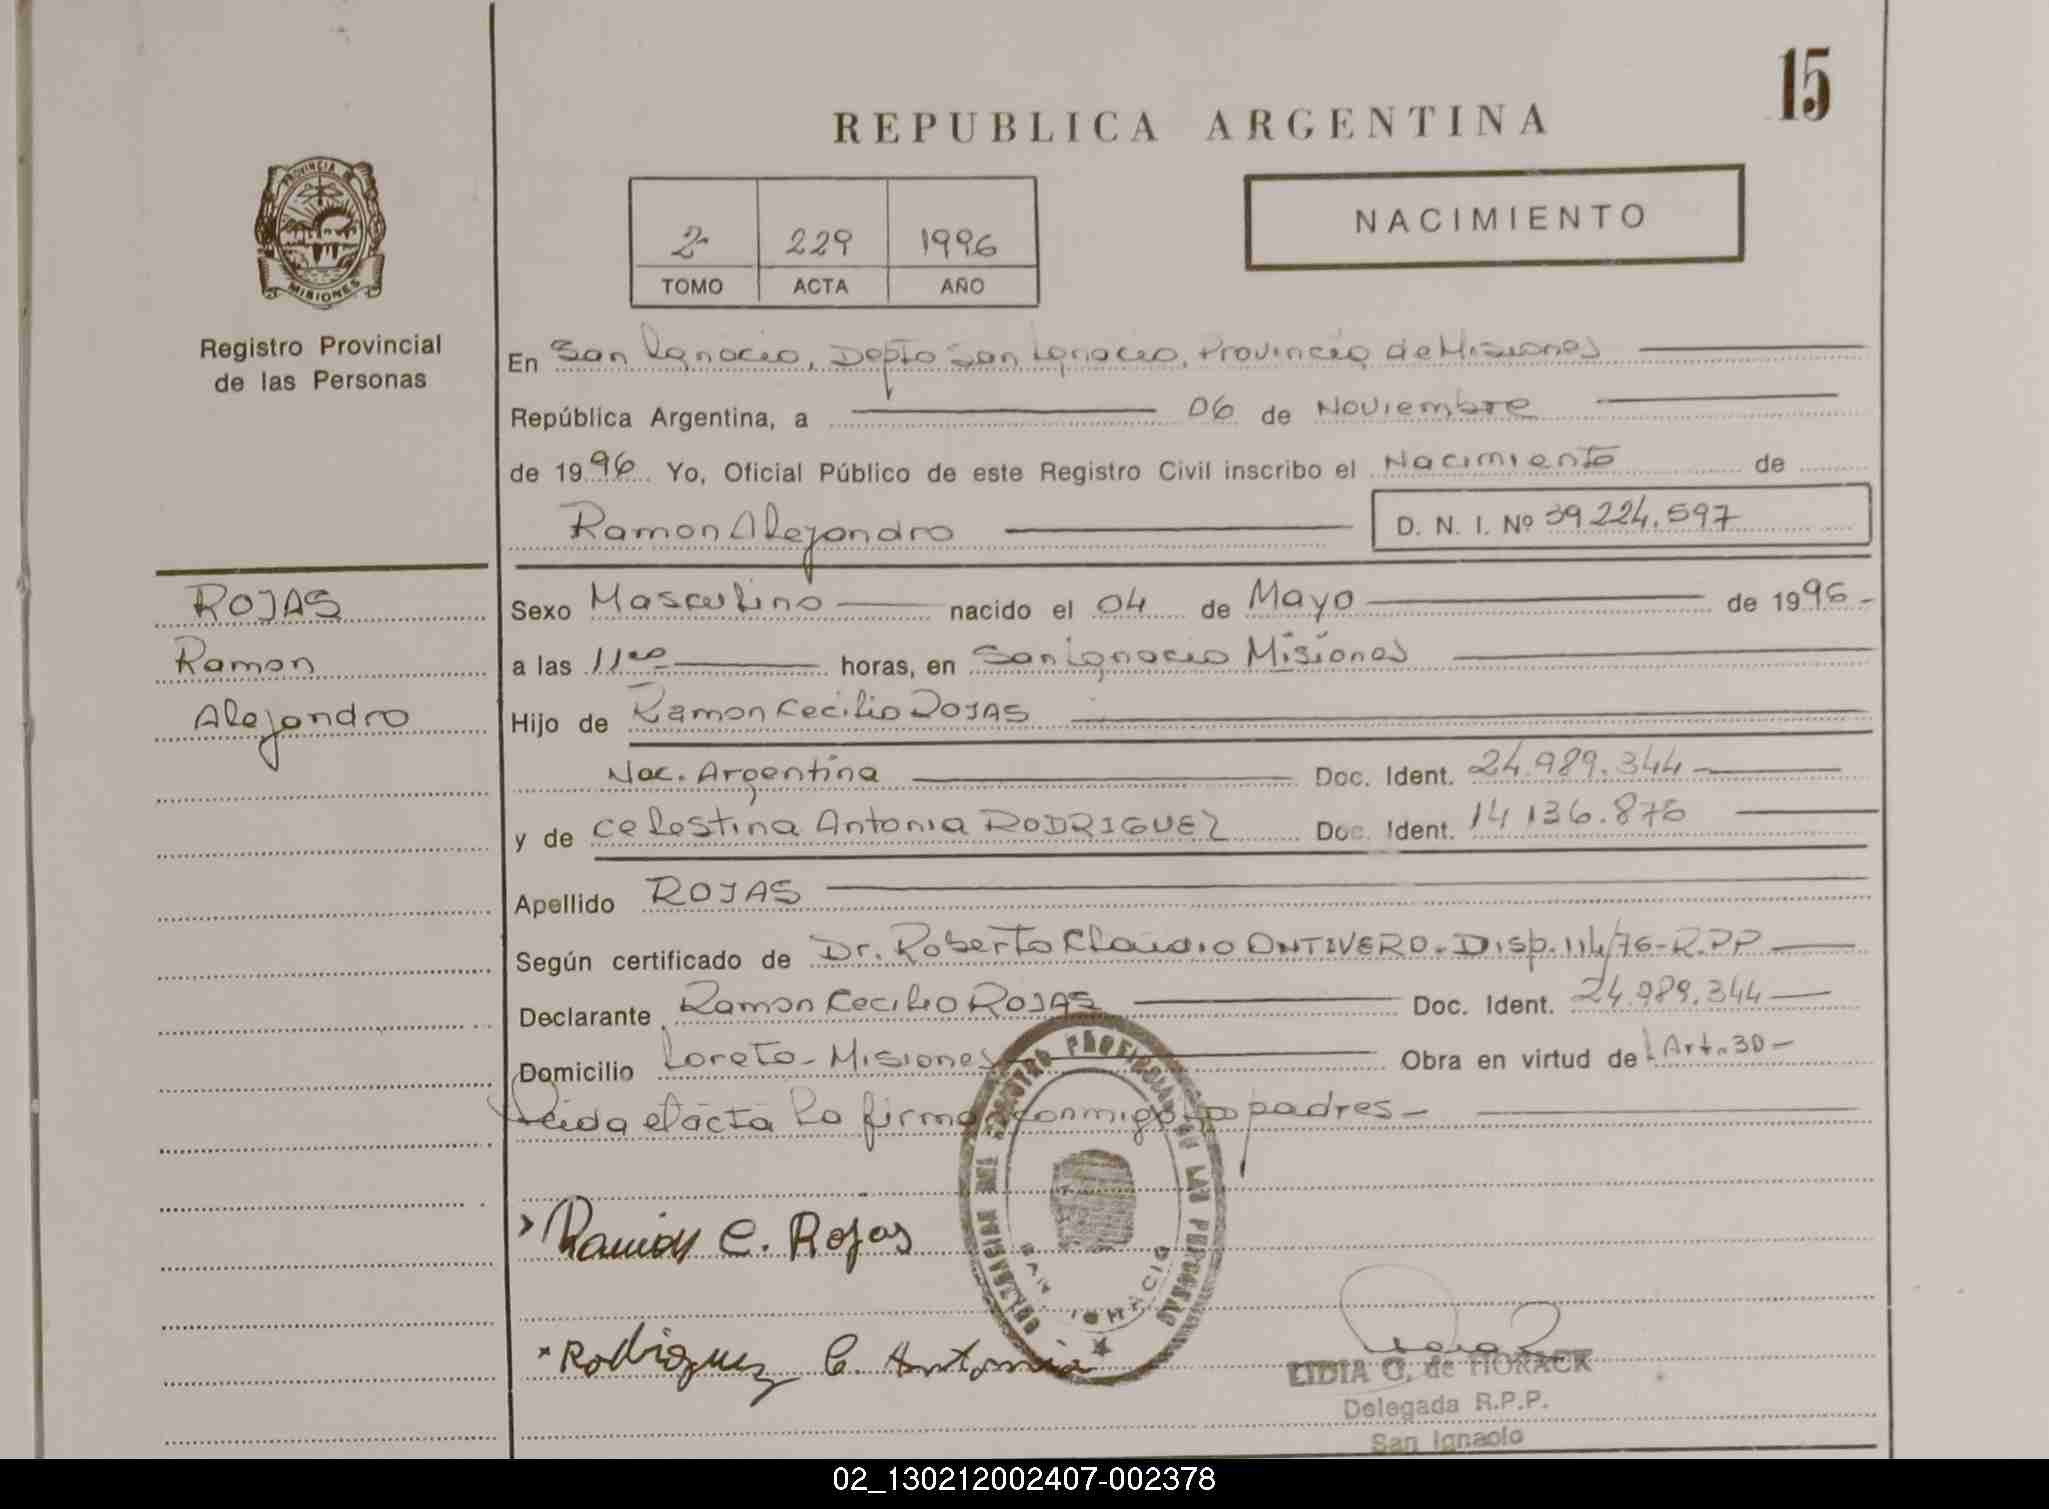 15
REPUBLICA ARGENTINA
PROVINCIA DE
MISIONES
Registro Provincial
de las Personas
2 229 1996
TOMO ACTA AÑO
NACIMIENTO
En San Ignacio, Depto San Ignacio, Provincia de Misiones
República Argentina, a 06 de Noviembre
de 1996 Yo, Oficial Público de este Registro Civil inscribo el Nacimiento de
Ramon Alejandro D. N. I. Nº 39.224.597
ROJAS
Ramon
Alejandro
Sexo Masculino nacido el 04 de Mayo de 1996-
a las 11 horas, en San Ignacio Misiones
Hijo de Ramon Cecilio ROJAS
Nac. Argentina Doc. Ident. 24.989.344
y de Celestina Antonia RODRIGUEZ Doc. Ident. 14 136.876
Apellido ROJAS
Según certificado de Dr. Roberto Claudio ONTIVERO. Disp. 114/76-R.PP
Declarante Ramon Cecilio ROJAS Doc. Ident. 24.989.344
Domicilio Loreto-Misiones Obra en virtud de Art. 30-
Leida el acta la firma conmigo padres-
DELEGACION DEL REGISTRO PROVINCIAL DE LAS PERSONAS
SAN IGNACIO
Ramon C. Rojas
Rodriguez C. Antonia
LIDIA G. de HORACK
Delegada R.P.P.
San Ignacio
02_130212002407-002378